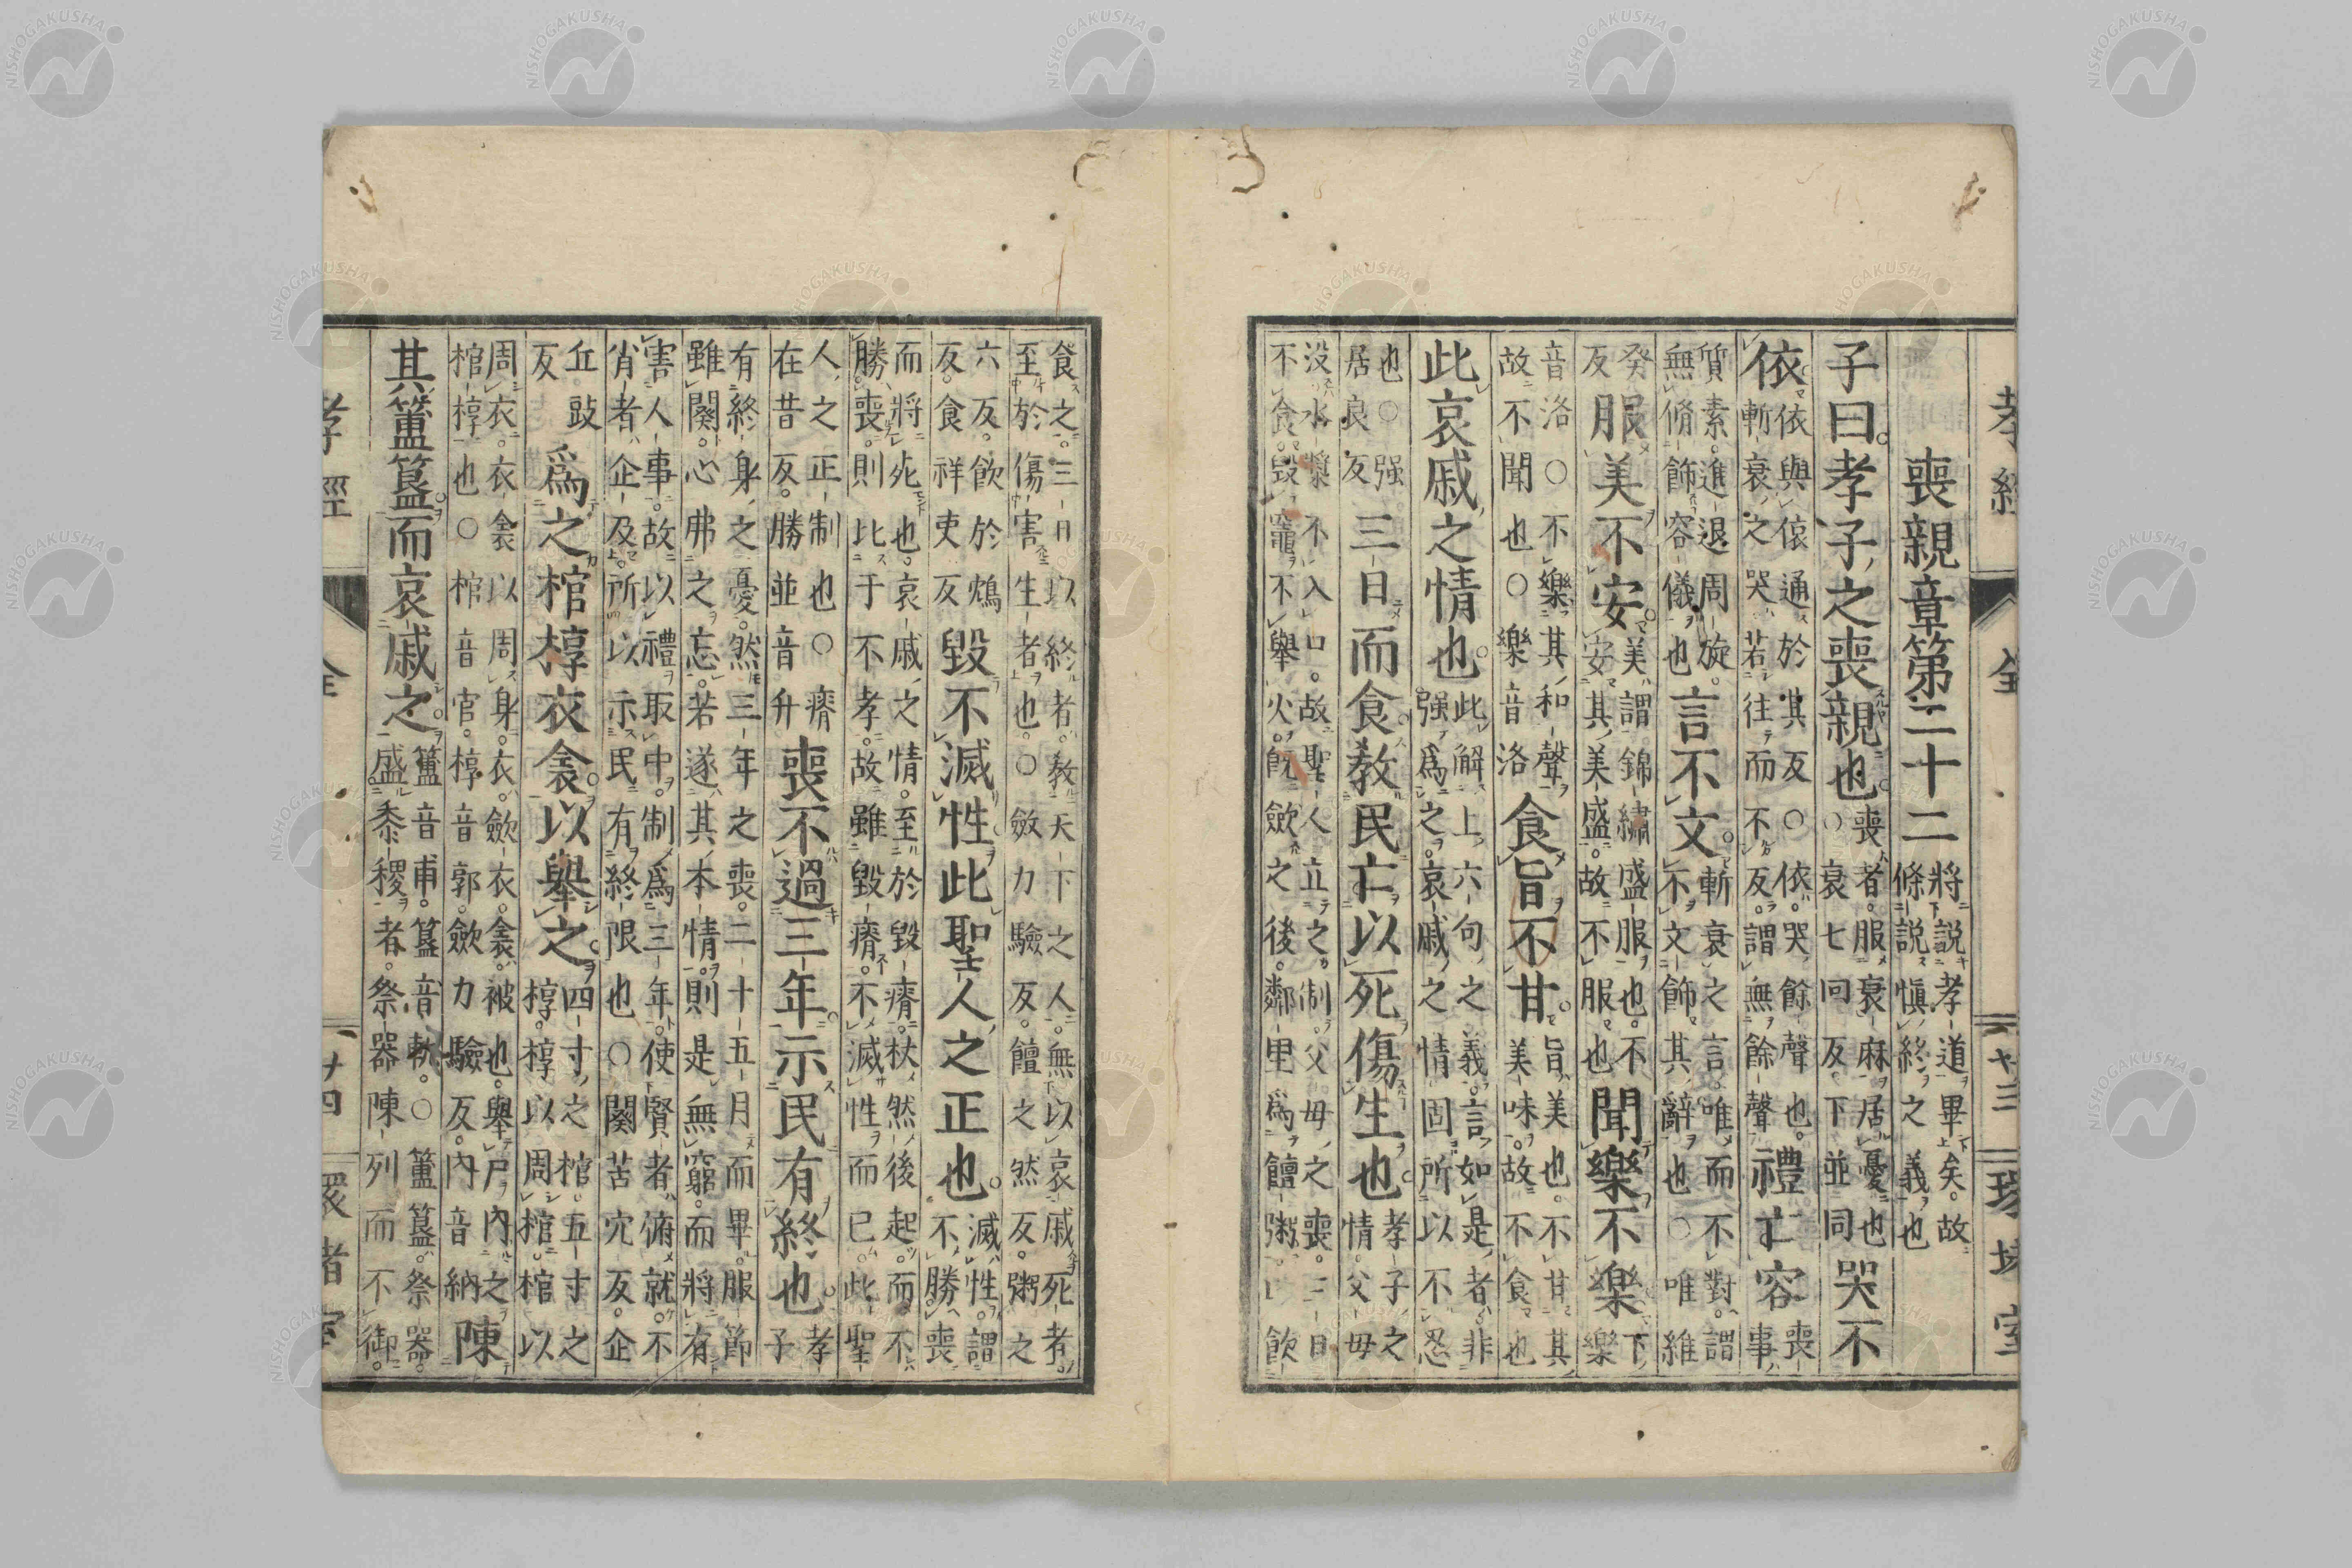 孝經 全 廿三 環堵室
喪親章第二十二 將説孝道畢矣故
條説慎終之義也
子曰孝子之喪親也 喪者服衰麻居憂也
○衰七回反下並同 哭不
依 依與偯通於其反○依哭餘聲也
斬衰之哭若往而不反謂無餘聲 禮亡容 喪
事
質素進退周旋
無脩飾容儀也 言不文 斬衰之言唯而不對謂
不文飾其辭也○唯維
癸
反 服美不安 美謂錦繡盛服也不
安其美盛故不服也 聞樂不樂 下
樂
音洛○不樂其和聲
故不聞也○樂音洛 食旨不甘 旨美也不甘其
美味故不食也
此哀戚之情也 此解上六句之義言如是者非
强爲之哀戚之情固所以不忍
也○强
居良反 三日而食教民亡以死傷生也 孝子之
情父母
没水漿不入口故聖人立之制父母之喪三日
不食毀竈不舉火旣歛之後鄰里爲饘粥以飮
食之三日以終者教天下之人無以哀戚死者
至於傷害生者也○斂力驗反饘之然反粥之
六反飮於鴆
反食祥吏反 毀不滅性此聖人之正也 滅性謂
不勝喪
而將死也哀戚之情至於毀瘠杖然後起而不
勝喪則比于不孝故雖毀瘠不滅性而已此聖
人之正制也○瘠
在昔反勝並音升 喪不過三年示民有終也 孝
子
有終身之憂然三年之喪二十五月而畢服節
雖闋心弗之忘若遂其本情則是無窮而將有
害人事故以禮取中制爲三年使賢者俯就不
肖者企及所以示民有終限也○闋苦穴反企
丘豉
反 爲之棺椁衣衾以舉之 四寸之棺五寸之
椁椁以周棺棺以
周衣衣衾以周身衣歛衣衾被也舉尸內之
棺椁也○棺音官椁音郭歛力驗反內音納 陳
其簠簋而哀戚之 簠音甫簋音軌○簠簋祭器
盛黍稷者祭器陳列而不御
孝經 全 廿四 環堵室
NISHOGAKUSHA